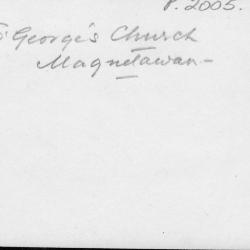 P. 2005.
St George's Church
Magnetawan -